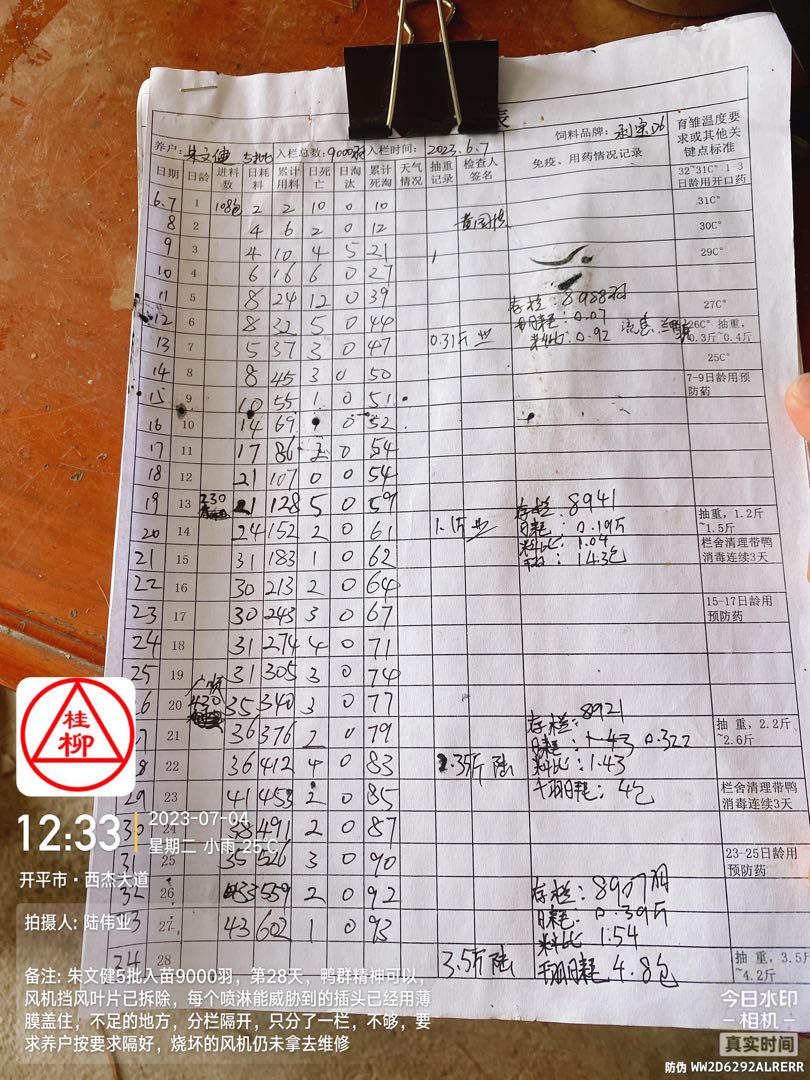 表
养户：朱文健 5批 入栏总数：9000羽 入栏时间：2023.6.7 饲料品牌：
育雏温度要求或其他关键点标准
日期 日龄 进料数 日耗料 累计用料 日死亡 日淘汰 累计死淘 天气情况 抽重记录 检查人签名 免疫、用药情况记录
32~31C° 1-3日龄用开口药
6.7 1 108包 2 2 10 0 10 31C°
8 2 4 6 2 0 12 30C°
9 3 4 10 4 5 21 29C°
10 4 6 16 6 0 27
11 5 8 24 12 0 39 存栏：8988羽 27C°
12 6 8 32 5 0 44 日耗：0.07 26C° 抽重，0.3斤~0.4斤
13 7 5 37 3 0 47 0.31斤 业 料比：0.92 25C°
14 8 8 45 3 0 50 7-9日龄用预防药
15 9 10 55 1 0 51
16 10 14 69 1 0 52
17 11 17 86 2 0 54
18 12 21 107 0 0 54
19 13 230 21 128 5 0 59 存栏：8941 抽重，1.2斤~1.5斤
20 14 24 152 2 0 61 1.1斤 业 日耗：0.19斤
料比：1.04
21 15 31 183 1 0 62 栏舍清理带鸭消毒连续3天
22 16 30 213 2 0 64
23 17 30 243 3 0 67 15-17日龄用预防药
24 18 31 274 4 0 71
25 19 31 305 3 0 74
26 20 430 35 340 3 0 77 存栏：8921
21 36 376 2 0 79 日耗：0.322 抽重，2.2斤~2.6斤
22 36 412 4 0 83 2.35斤 陆 料比：1.43
29 23 41 453 2 0 85 千羽日耗：4包 栏舍清理带鸭消毒连续3天
30 24 38 491 2 0 87
31 25 35 526 3 0 90 23-25日龄用预防药
32 26 33 559 2 0 92 存栏：8907羽
33 27 43 602 1 0 93 日耗：0.39斤
料比 1.54
34 28 3.5斤 陆 千羽日耗 4.8包 抽重，3.5斤~4.2斤
桂柳
12:33
2023-07-04
星期二 小雨 25°C
开平市·西杰大道
拍摄人: 陆伟业
备注: 朱文健5批入苗9000羽，第28天，鸭群精神可以，
风机挡风叶片已拆除，每个喷淋能威胁到的插头已经用薄
膜盖住，不足的地方，分栏隔开，只分了一栏，不够，要
求养户按要求隔好，烧坏的风机仍未拿去维修
今日水印
相机
真实时间
防伪 WW2D6292ALRERR